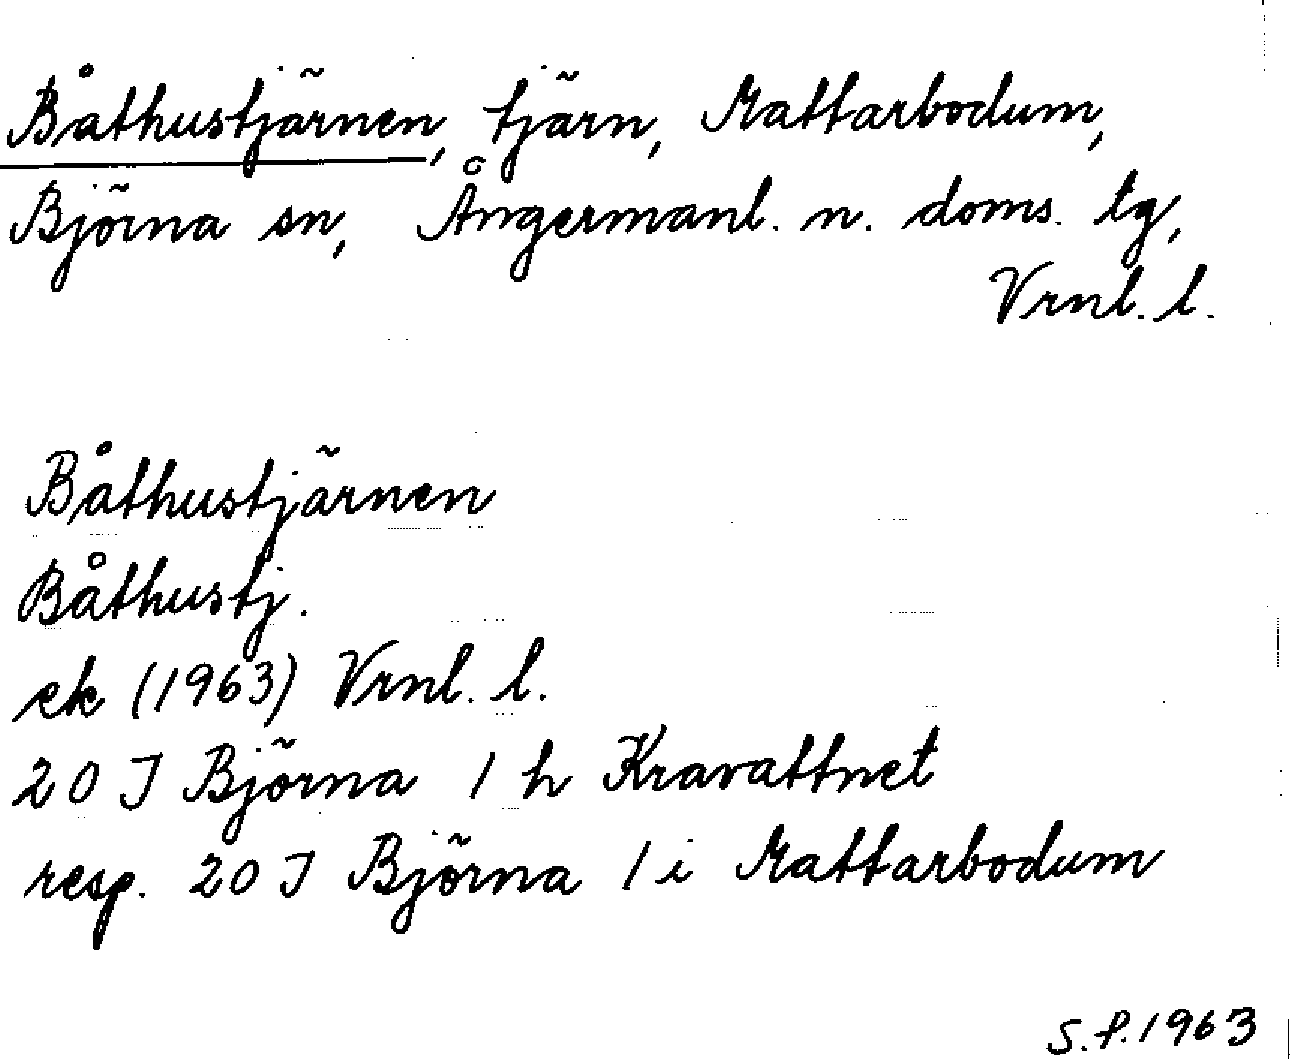 Båthustjärnen, tjärn, Mattarbodum,
Björna sn, Ångermanl. n. doms. tg,
Vrnl. l.
Båthustjärnen
Båthustj.
ek (1963) Vrnl. l.
20 J Björna 1 h Kravattnet
resp. 20 J Björna 1 i Mattarbodum
S.P. 1963